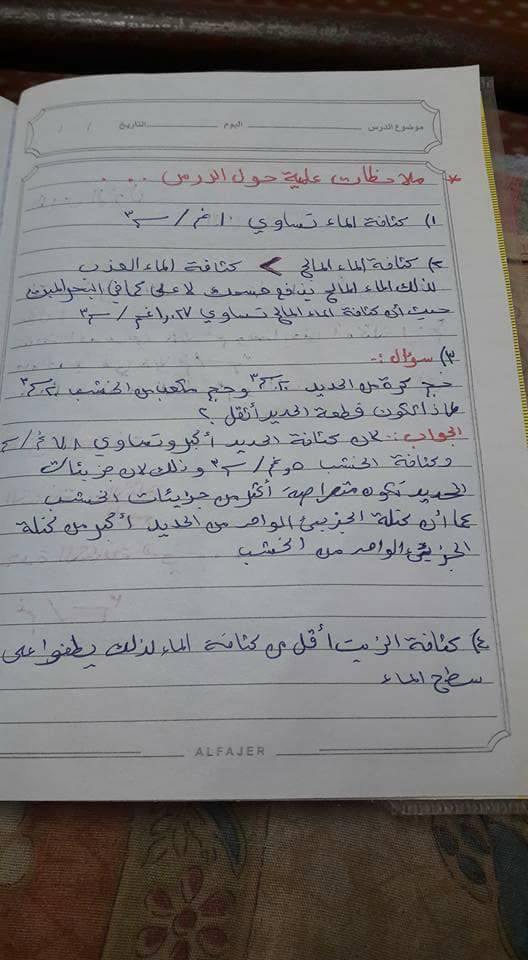 موضوع الدرس اليوم التاريخ / /
* ملاحظات علمية حول الدرس ...
١) كثافة الماء تساوي ١٫٠ غم/سم٣
٢) كثافة الماء المالح > كثافة الماء العذب
لذلك الماء المالح يدفع جسمك لأعلى كما في البحر الميت
حيث أن كثافة الماء المالح تساوي ١٫٠٢٧ غم/سم٣
٣) سؤال :-
حجم كرة من الحديد ٢٠سم٣ وحجم مكعب من الخشب ٢٠سم٣
لماذا تكون قطعة الحديد أثقل ؟
الجواب :- لأن كثافة الحديد أكبر وتساوي ٧٫٨ غم/سم
وكثافة الخشب ٥٫ غم/سم٣ وذلك لأن جزيئات
الحديد تكون متراصة أكثر من جزيئات الخشب
كما أن كتلة الجزيئ الواحد من الحديد أكبر من كتلة
الجزيئ الواحد من الخشب
٤) كثافة الزيت أقل من كثافة الماء لذلك يطفوا على
سطح الماء
ALFAJER